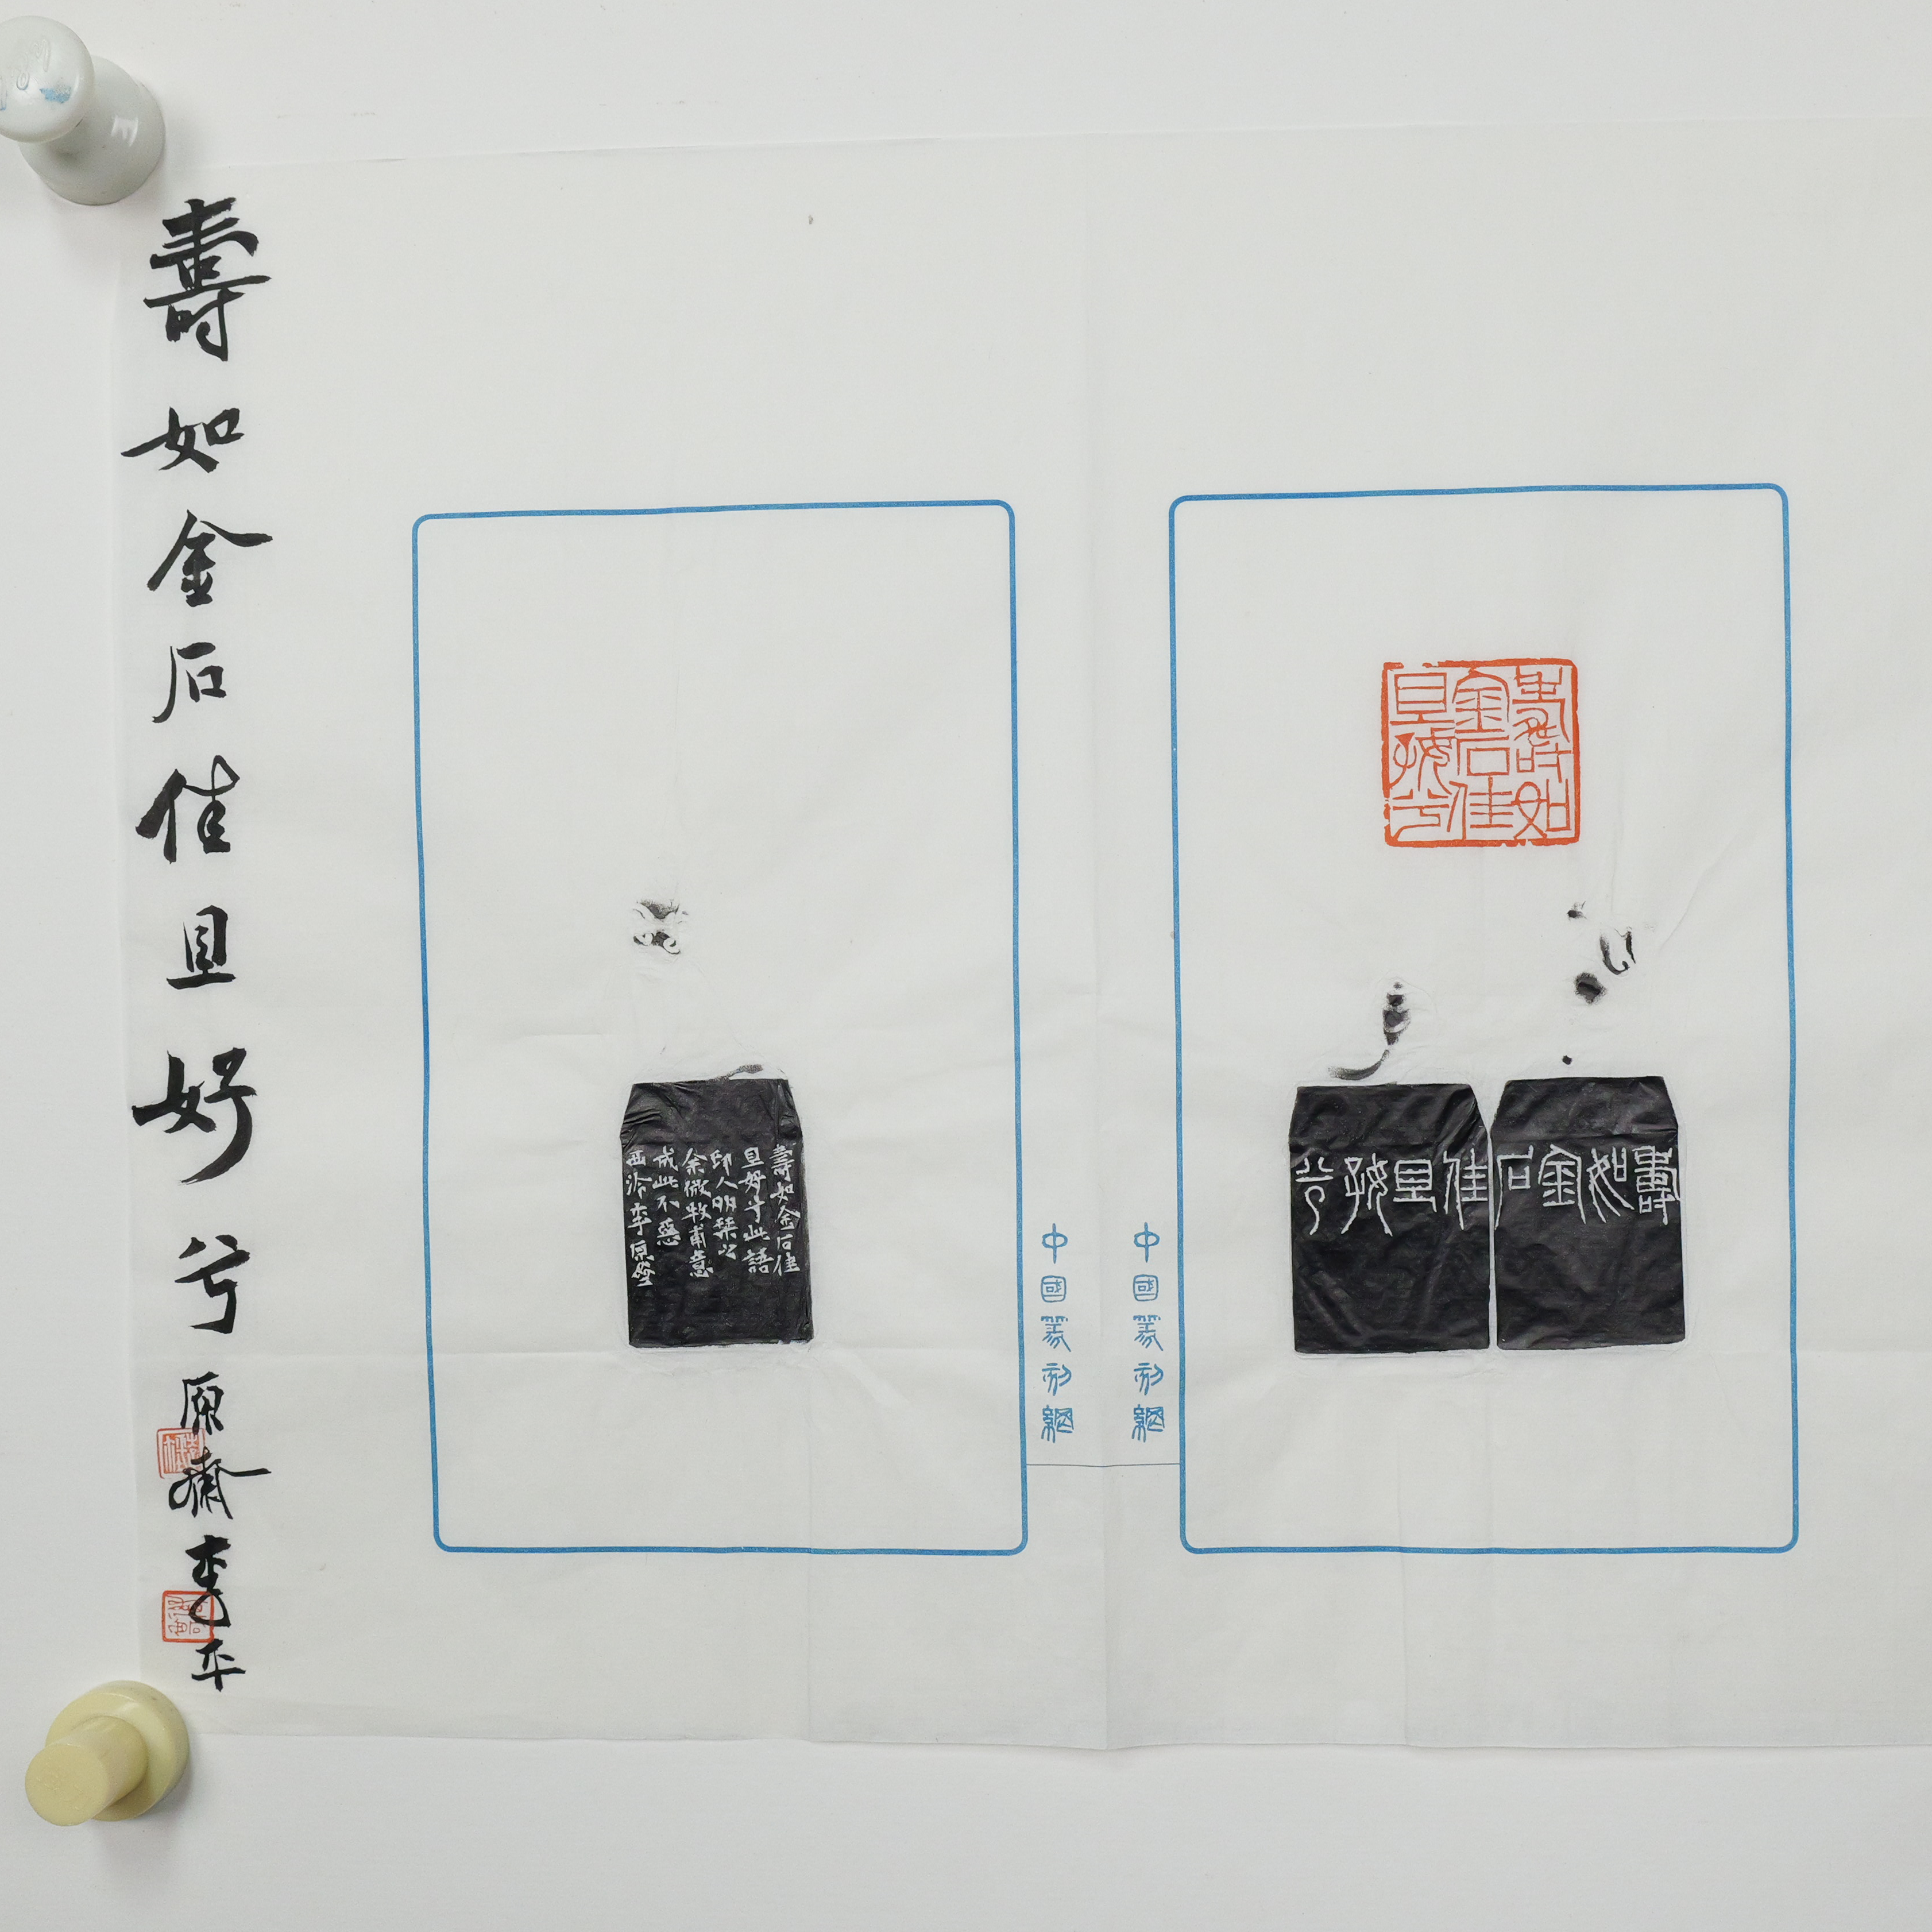 壽如金石佳且好兮
原齋李平
壽如
金石佳
且好兮
壽如金石
佳且好兮
中國篆刻網
中國篆刻網
壽如金石佳
且好兮此語
印人明琹
余微牧甫意
成此不惡
西泠李原